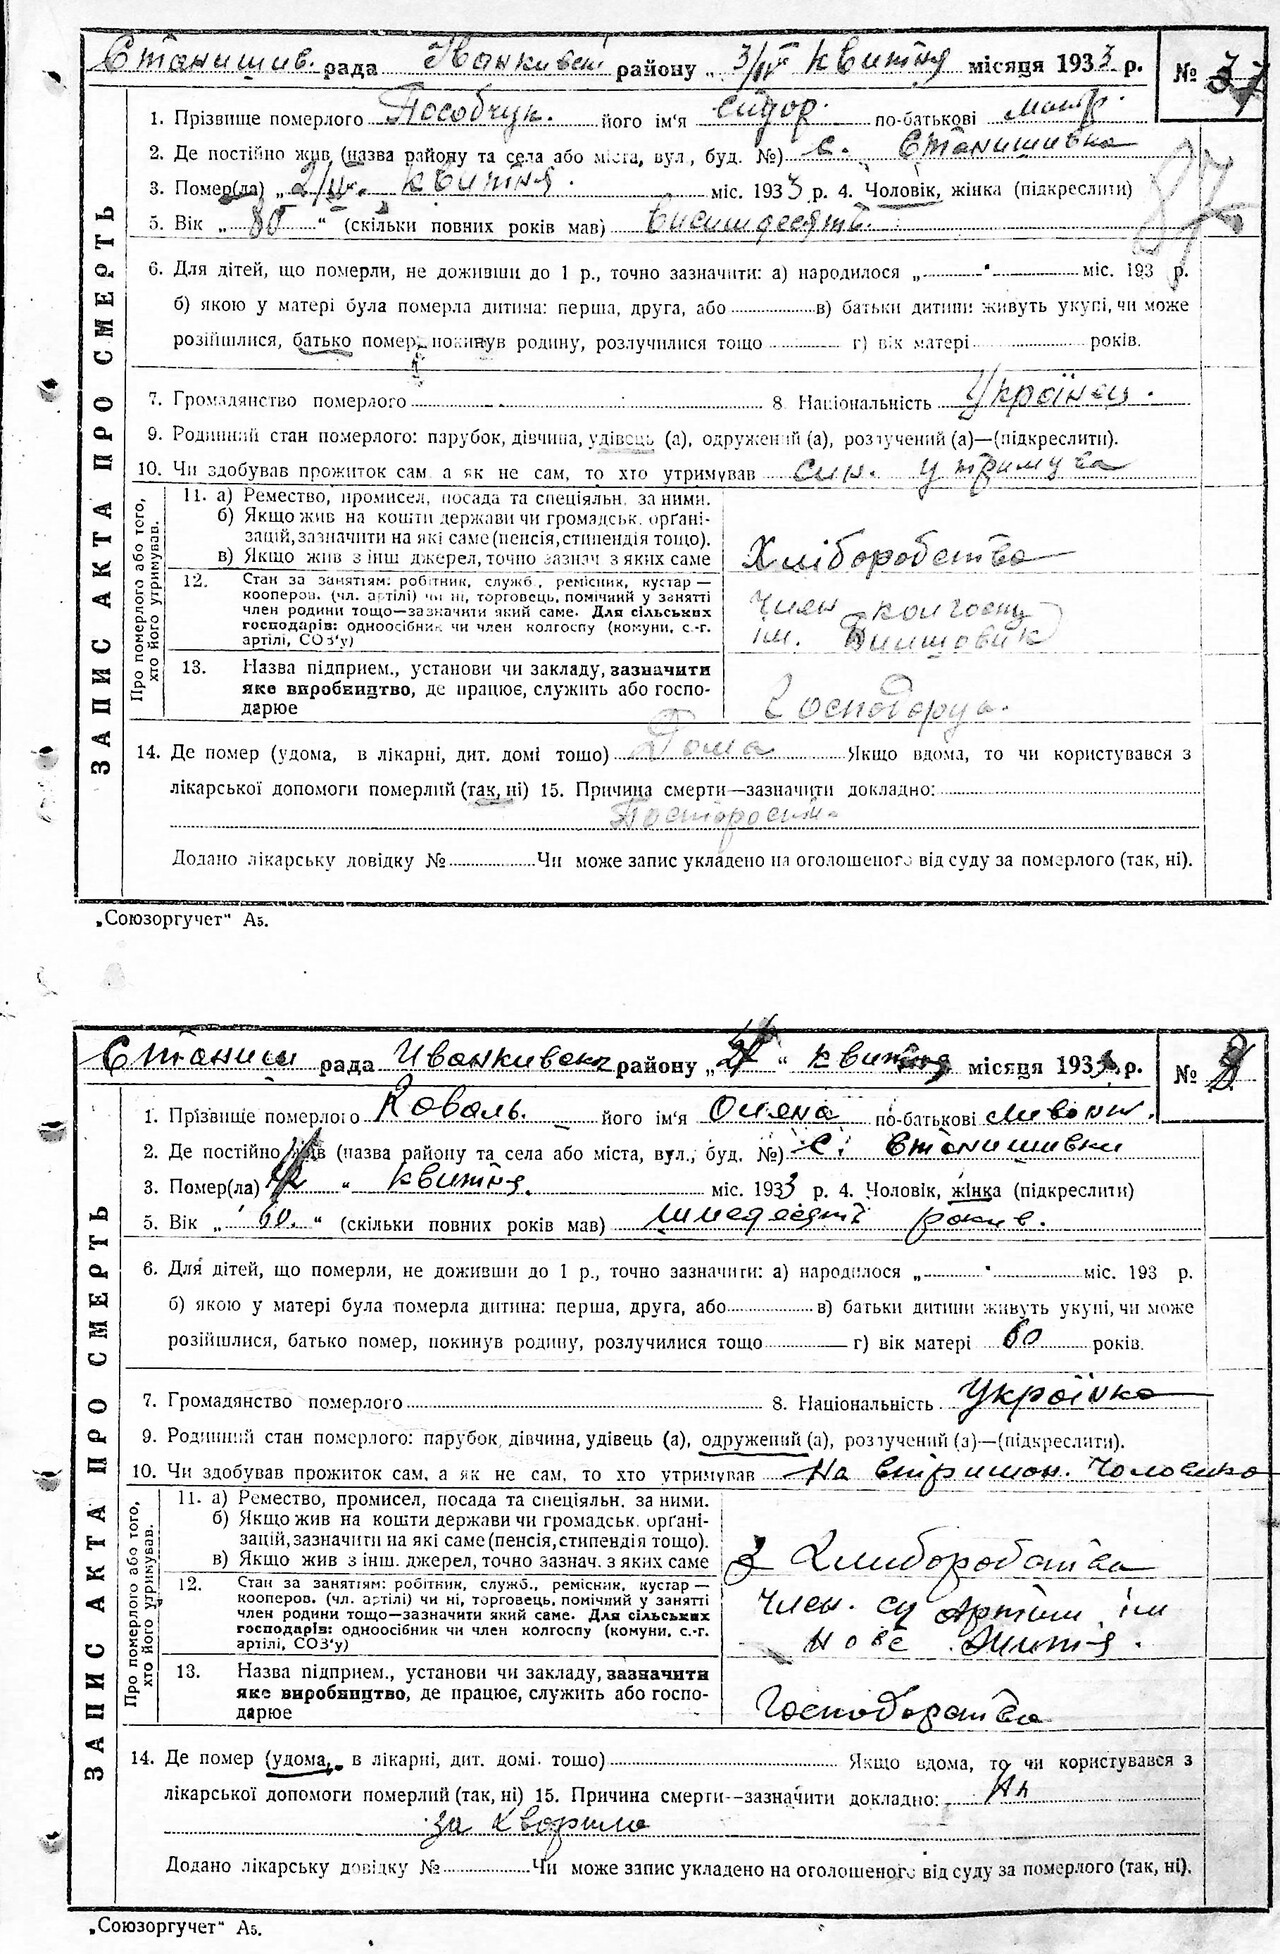 Станишив. рада Іванківськ району „3/IV квитня місяця 1933 р. № 37
87
ЗАПИС АКТА ПРО СМЕРТЬ
1. Прізвище померлого Пособчук. його ім'я Сидор. по-батькові
2. Де постійно жив (назва району та села або міста, вул., буд. №) с. Станишивка
3. Помер(ла) „2/IV. квитня. міс. 1933 р. 4. Чоловік, жінка (підкреслити)
5. Вік „80“ (скільки повних років мав) висимдесять.
6. Для дітей, що померли, не доживши до 1 р., точно зазначити: а) народилося „ “ міс. 193 р.
б) якою у матері була померла дитина: перша, друга, або в) батьки дитини живуть укупі, чи може
розійшлися, батько помер, покинув родину, розлучилися тощо г) вік матері років.
7. Громадянство померлого 8. Національність Українец.
9. Родинний стан померлого: парубок, дівчина, удівець (а), одружений (а), розлучений (а)—(підкреслити).
10. Чи здобував прожиток сам, а як не сам, то хто утримував син. утримува
Про померлого або того, хто його утримував.
11. а) Ремество, промисел, посада та спеціяльн. за ними.
б) Якщо жив на кошти держави чи громадськ. орґані-
зацій, зазначити на які саме (пенсія, стипендія тощо).
в) Якщо жив з інш. джерел, точно зазнач. з яких саме Хліборобства
12. Стан за занятіям: робітник, служб., ремісник, кустар —
кооперов. (чл. артілі) чи ні, торговець, помічний у занятті
член родини тощо—зазначити який саме. Для сільських
господарів: одноосібник чи член колгоспу (комуни, с.-г.
артілі, СОЗ'у)
Член колгоспу
ім. Бильшовик
13. Назва підприєм., установи чи закладу, зазначити
яке виробництво, де працює, служить або госпо-
дарює
Господарує.
14. Де помер (удома, в лікарні, дит. домі тощо) Дома Якщо вдома, то чи користувався з
лікарської допомоги померлий (так, ні) 15. Причина смерти—зазначити докладно:
Додано лікарську довідку № Чи може запис укладено на оголошеного від суду за померлого (так, ні).
„Союзоргучет“ А5.
Станиш рада Иванкивска району „ “ квитня місяця 1933 р. № 8
ЗАПИС АКТА ПРО СМЕРТЬ
1. Прізвище померлого Коваль. його ім'я Олена по-батькові
2. Де постійно жив (назва району та села або міста, вул., буд. №) с. Станишивки
3. Помер(ла) “ квитня. міс. 1933 р. 4. Чоловік, жінка (підкреслити)
5. Вік „60.“ (скільки повних років мав) шисдесять рокив.
6. Для дітей, що померли, не доживши до 1 р., точно зазначити: а) народилося „ “ міс. 193 р.
б) якою у матері була померла дитина: перша, друга, або в) батьки дитини живуть укупі, чи може
розійшлися, батько помер, покинув родину, розлучилися тощо г) вік матері 60 років.
7. Громадянство померлого 8. Національність Українка
9. Родинний стан померлого: парубок, дівчина, удівець (а), одружений (а), розлучений (а)—(підкреслити).
10. Чи здобував прожиток сам, а як не сам, то хто утримував На
Про померлого або того, хто його утримував.
11. а) Ремество, промисел, посада та спеціяльн. за ними.
б) Якщо жив на кошти держави чи громадськ. орґані-
зацій, зазначити на які саме (пенсія, стипендія тощо).
в) Якщо жив з інш. джерел, точно зазнач. з яких саме З Хлиборобства
12. Стан за занятіям: робітник, служб., ремісник, кустар —
кооперов. (чл. артілі) чи ні, торговець, помічний у занятті
член родини тощо—зазначити який саме. Для сільських
господарів: одноосібник чи член колгоспу (комуни, с.-г.
артілі, СОЗ'у)
Член. су Артили ім
Нове Життя.
13. Назва підприєм., установи чи закладу, зазначити
яке виробництво, де працює, служить або госпо-
дарює
Господарства
14. Де помер (удома, в лікарні, дит. домі тощо) Якщо вдома, то чи користувався з
лікарської допомоги померлий (так, ні) 15. Причина смерти—зазначити докладно:
за хворила
Додано лікарську довідку № Чи може запис укладено на оголошеного від суду за померлого (так, ні).
„Союзоргучет“ А5.